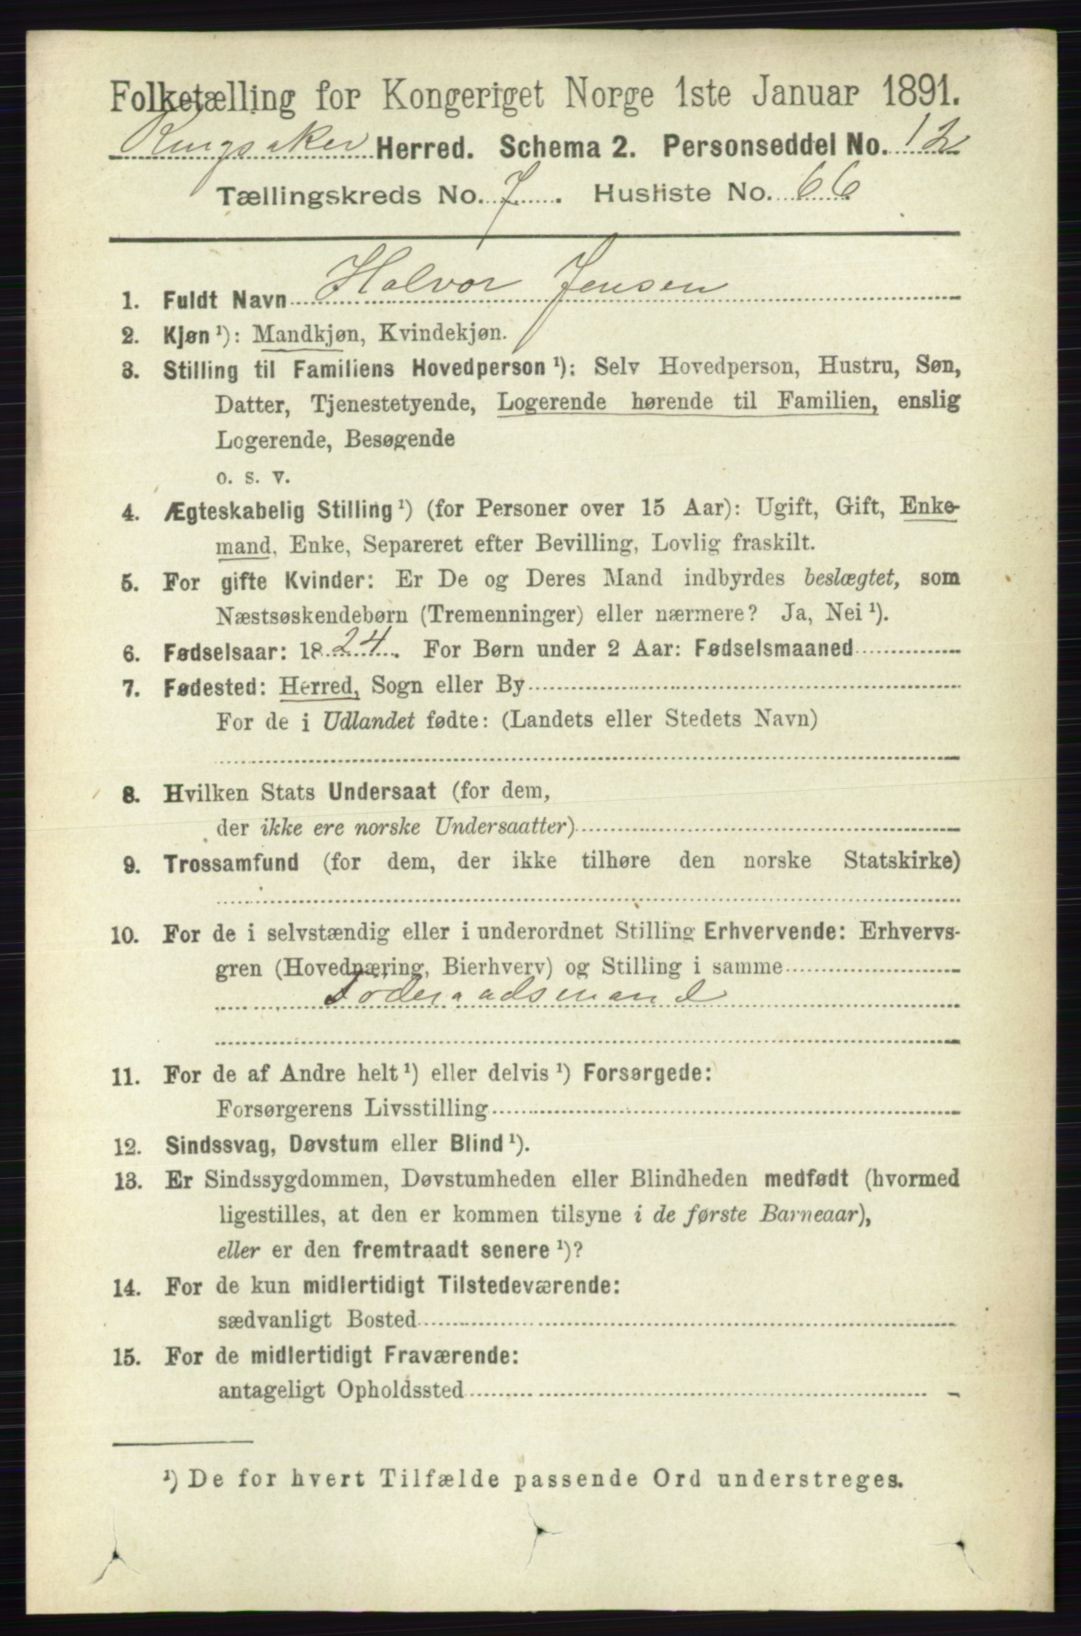 Folketælling for Kongeriget Norge 1ste Januar 1891.
Ringsaker Herred. Schema 2. Personseddel No. 12
Tællingskreds No. 7. Husliste No. 66
1. Fuldt Navn Halvor Jensen
2. Kjøn ¹): Mandkjøn, Kvindekjøn.
3. Stilling til Familiens Hovedperson ¹): Selv Hovedperson, Hustru, Søn,
Datter, Tjenestetyende, Logerende hørende til Familien, enslig
Logerende, Besøgende
o. s. v.
4. Ægteskabelig Stilling ¹) (for Personer over 15 Aar): Ugift, Gift, Enke-
mand, Enke, Separeret efter Bevilling, Lovlig fraskilt.
5. For gifte Kvinder: Er De og Deres Mand indbyrdes beslægtet, som
Næstsøskendebørn (Tremenninger) eller nærmere? Ja, Nei ¹).
6. Fødselsaar: 1824. For Børn under 2 Aar: Fødselsmaaned
7. Fødested: Herred, Sogn eller By
For de i Udlandet fødte: (Landets eller Stedets Navn)
8. Hvilken Stats Undersaat (for dem,
der ikke ere norske Undersaatter)
9. Trossamfund (for dem, der ikke tilhøre den norske Statskirke)
10. For de i selvstændig eller i underordnet Stilling Erhvervende: Erhvervs-
gren (Hovednæring, Bierhverv) og Stilling i samme
Føderaadsmand
11. For de af Andre helt ¹) eller delvis ¹) Forsørgede:
Forsørgerens Livsstilling
12. Sindssvag, Døvstum eller Blind ¹).
13. Er Sindssygdommen, Døvstumheden eller Blindheden medfødt (hvormed
ligestilles, at den er kommen tilsyne i de første Barneaar),
eller er den fremtraadt senere ¹)?
14. For de kun midlertidigt Tilstedeværende:
sædvanligt Bosted
15. For de midlertidigt Fraværende:
antageligt Opholdssted
¹) De for hvert Tilfælde passende Ord understreges.